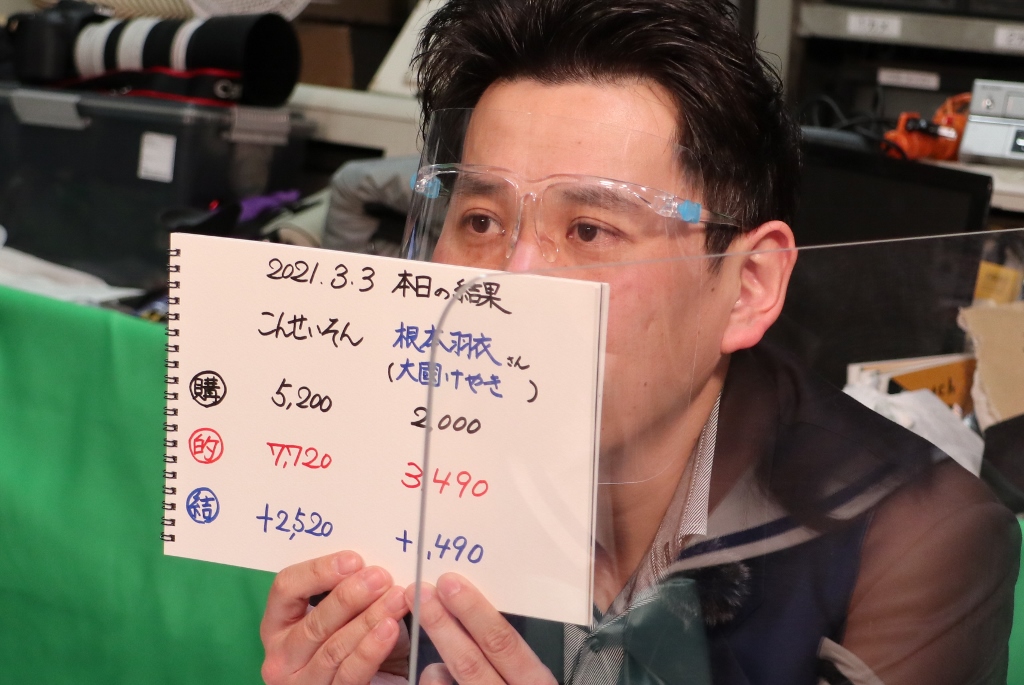 2021.3.3 本日の結果
こんせいそん 根本羽衣さん
(大國けやき)
購 5,200 2,000
的 7,720 3490
結 +2,520 +,490